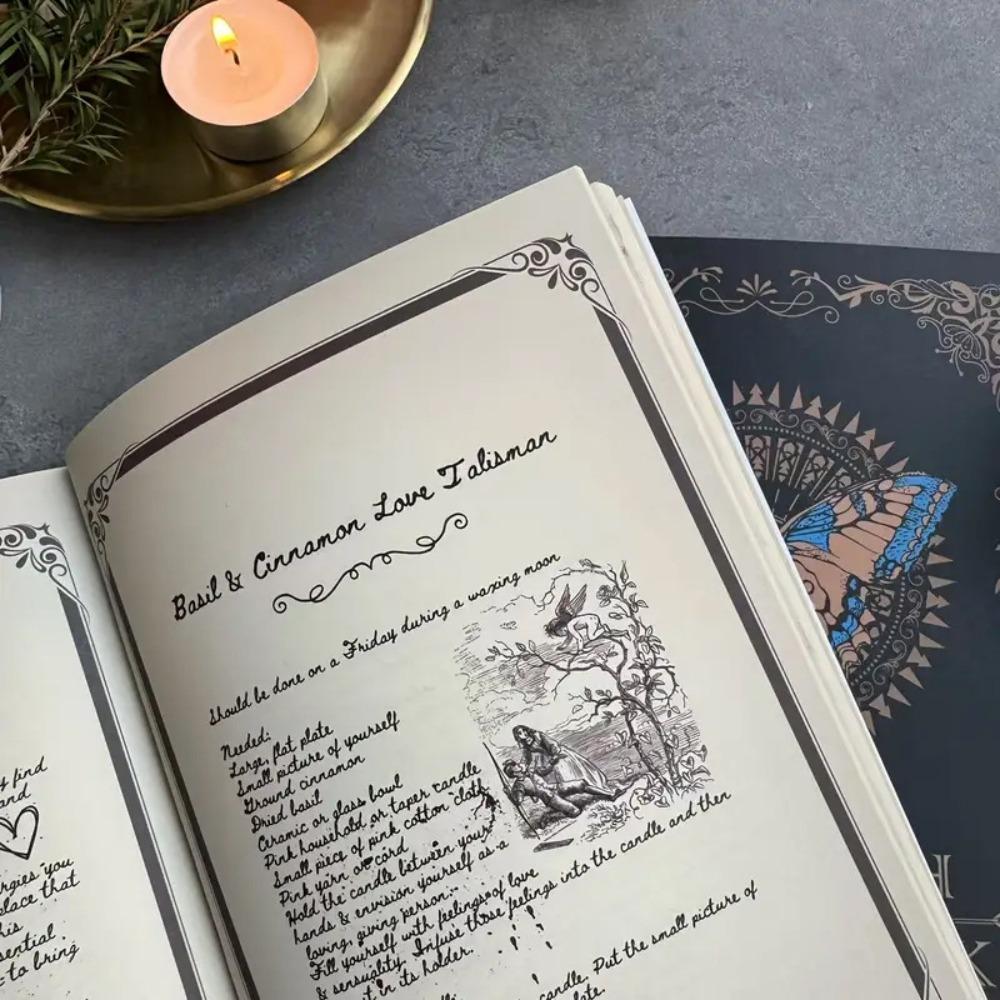 y find
and
rgies you
place that
his
sential
to bring
Basil & Cinnamon Love Talisman
Should be done on a Friday during a waxing moon
Needed:
Large, flat plate
Small picture of yourself
Ground cinnamon
Dried basil
Ceramic or glass bowl
Pink household or taper candle
Small piece of pink cotton cloth
Pink yarn or cord
Hold the candle between your
hands & envision yourself as a
loving, giving person.
Fill yourself with feelings of love
& sensuality. Infuse those feelings into the candle and then
it in its holder.
candle. Put the small picture of
plate.
H
K